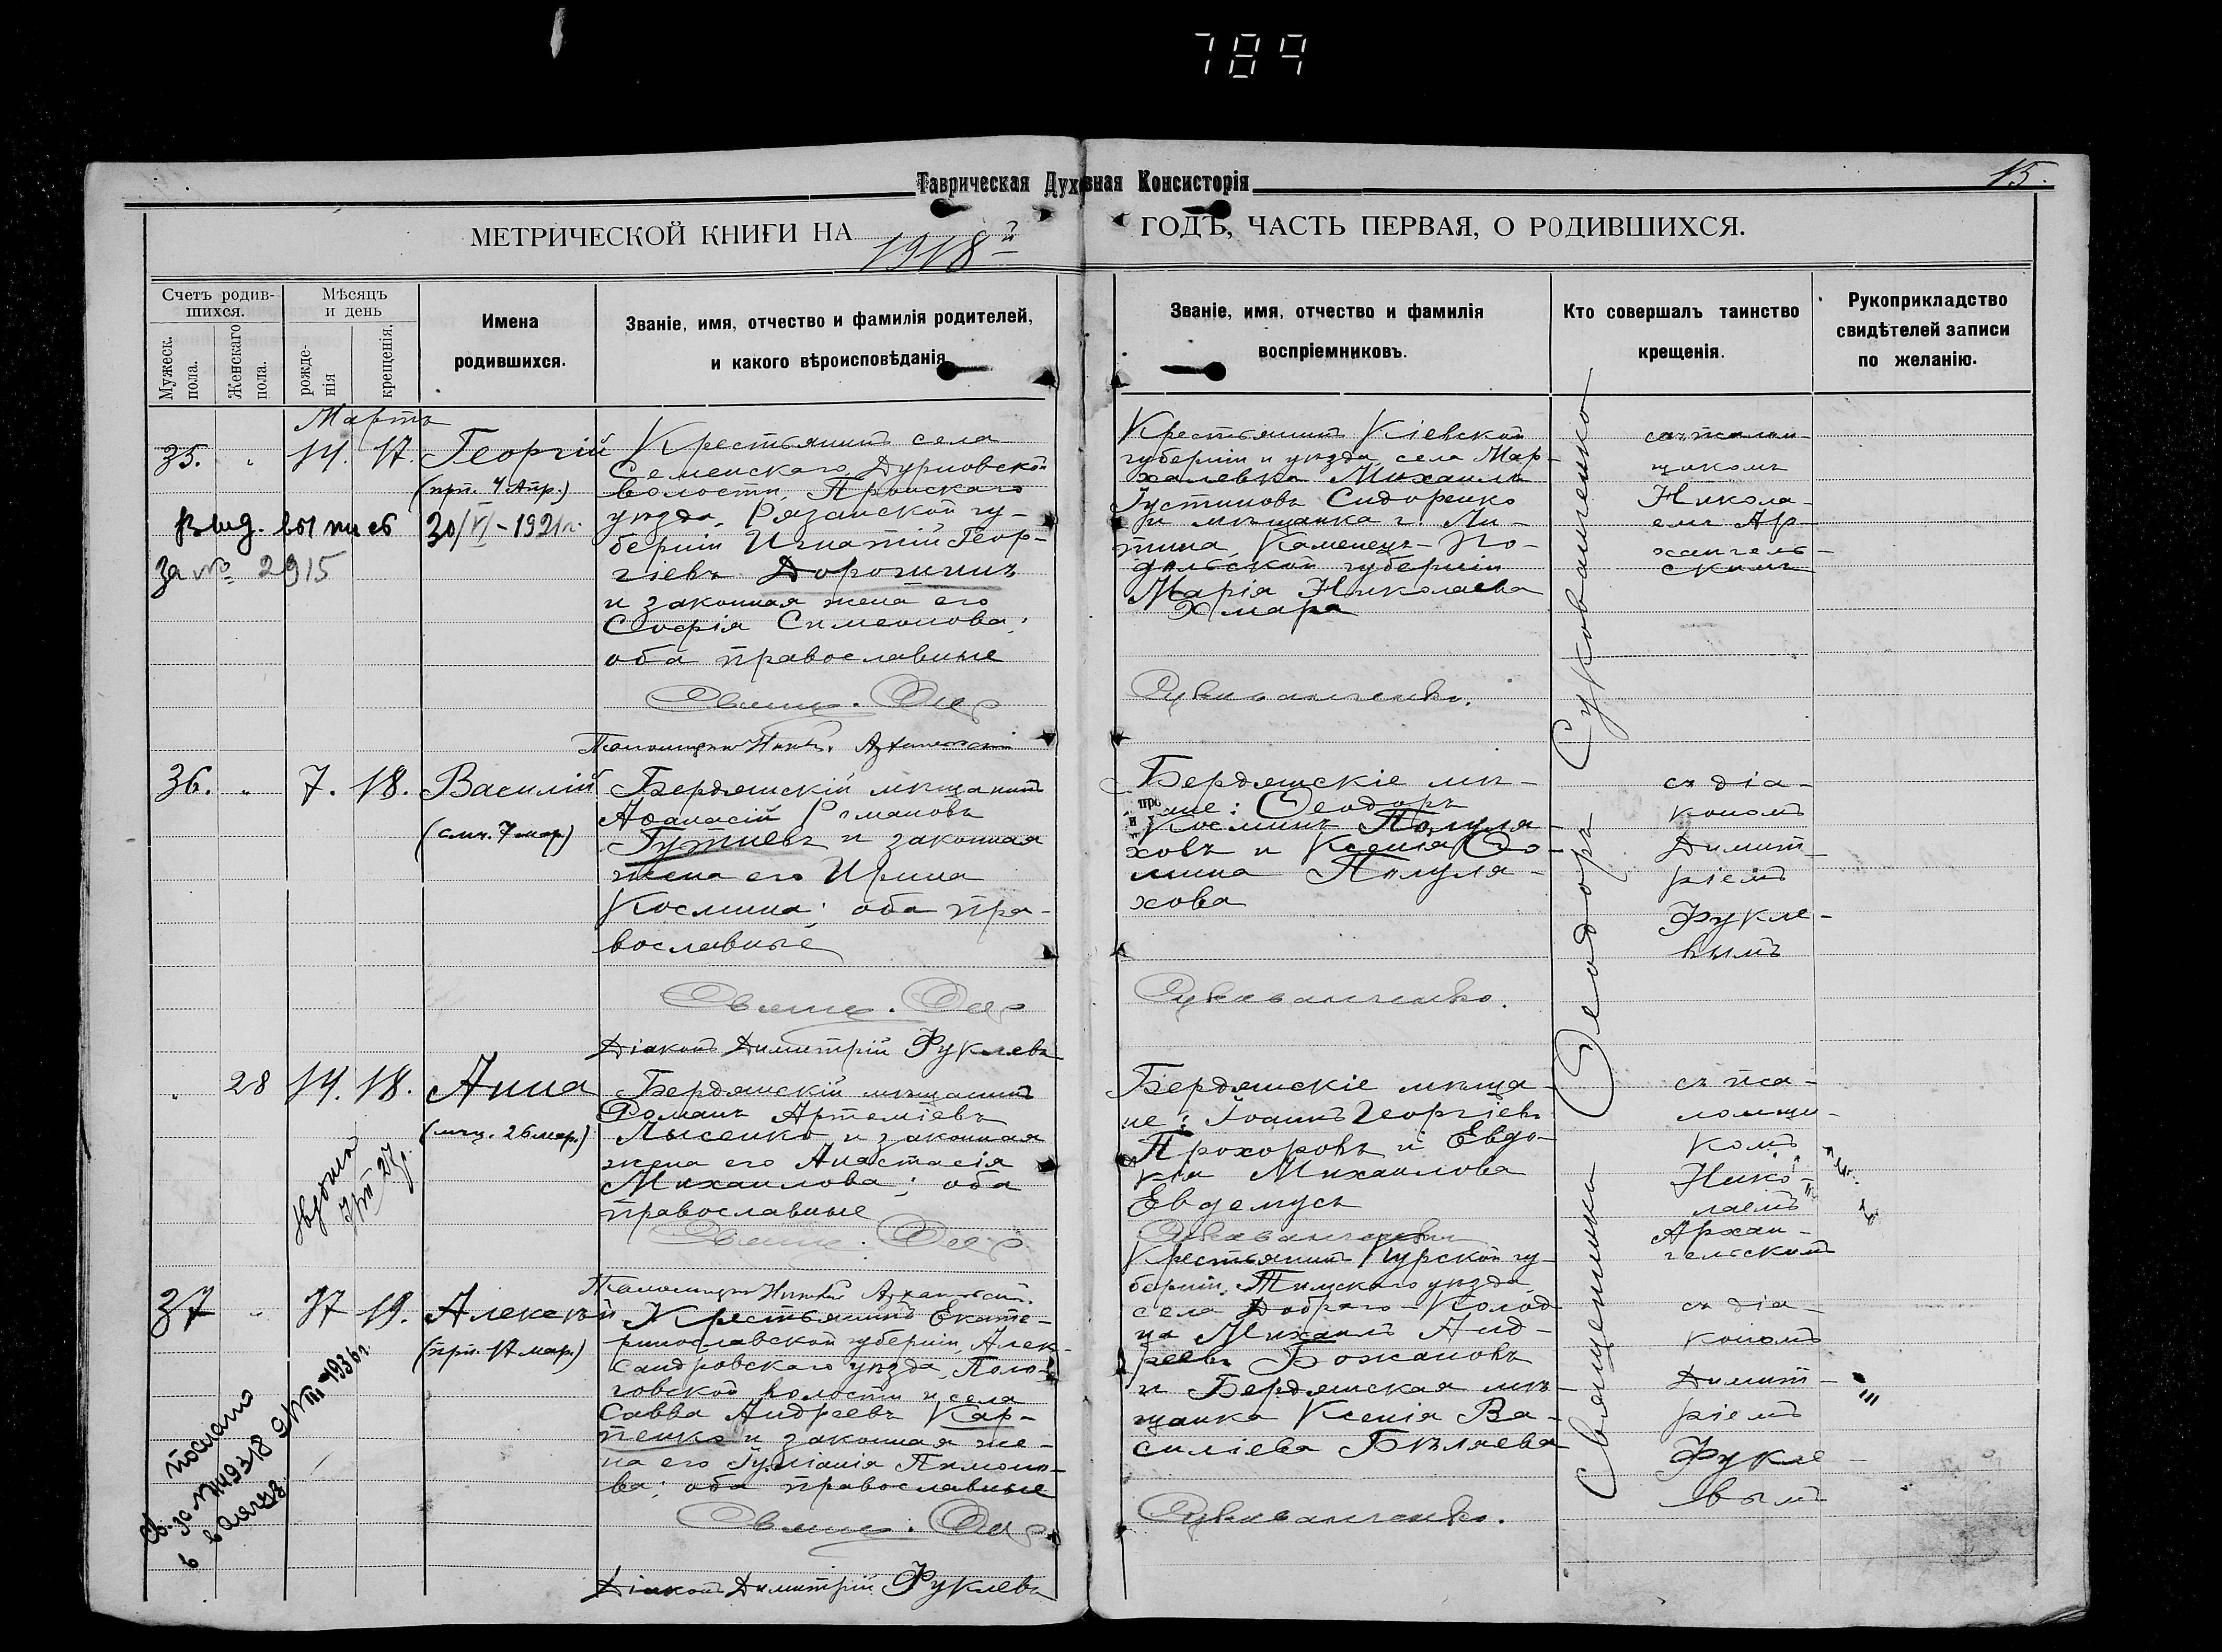 789
Таврическая Духовная Консисторія
15.
МЕТРИЧЕСКОЙ КНИГИ НА 1918й ГОДЪ, ЧАСТЬ ПЕРВАЯ, О РОДИВШИХСЯ.
Счетъ родив-
шихся.
Мужеск. пола.
Женскаго пола.
Мѣсяцъ
и день
рожде-
нія
крещенія.
Имена
родившихся.
Званіе, имя, отчество и фамилія родителей,
и какого вѣроисповѣданія.
Званіе, имя, отчество и фамилія
воспріемниковъ.
Кто совершалъ таинство
крещенія.
Рукоприкладство
свидѣтелей записи
по желанію.
Мартъ
35. " 14. 17. Георгій
(прп. 4 Апр.)
выд. выпись 30/VI-1921г.
за № 2915
Крестьянинъ села
Семенскаго, Дурновской
волости, Пронскаго
уѣзда, Рязанской гу-
берніи Игнатій Геор-
гіевъ Дорогининъ
и законная жена его
Софія Симеонова;
оба православные
Свящ. Ѳео
Псаломщикъ Никол. Архангельскій
Крестьянинъ Кіевской
губерніи и уѣзда, села Мар-
халевка Михаилъ
Іустиновъ Сидоренко
и мѣщанка г. Ли-
тина, Каменецъ-По-
дольской губерніи
Марія Николаева
Хмара
Сукованченко.
съ псалом-
щикомъ
Никола-
емъ Ар-
хангель-
скимъ
36. " 7. 18. Василій
(смч. 7 мар)
Бердянскій мѣщанинъ
Аѳанасій Романовъ
Гутневъ и законная
жена его Ирина
Космина; оба пра-
вославные
Свящ. Ѳео
Діаконъ Димитрій Фуклевъ
Бердянскіе мѣ-
не: Ѳеодоръ
Косминъ Полуля-
ховъ и Ксенія Ѳо-
мина Полуля-
хова
Сукованченко.
съ діа-
кономъ
Димит-
ріемъ
Фукле-
вымъ
" 28 14. 18. Анна
(мчц. 26 мар.)
Бердянскій мѣщанинъ
Романъ Артеміевъ
Лысенко и законная
жена его Анастасія
Михаилова; оба
православные
Свящ. Ѳео
Псаломщикъ Никол. Архангельскій.
Бердянскіе мѣща-
не: Іоаннъ Георгіевъ
Прохоровъ и Евдо-
кія Михаилова
Евдемусъ
Сукованченко
съ пса-
ломщи-
комъ
Нико-
лаемъ
Архан-
гельскимъ
37 " 17 19. Алексѣй
(прп. 17 мар.)
Крестьянинъ Екате-
ринославской губерніи, Алек-
сандровскаго уѣзда, Поло-
говской волости и села
Савва Андреевъ Кар-
пенко и законная же-
на его Іуліанія Пимоно-
ва; оба православные
Свящ. Ѳео
Діаконъ Димитрій Фуклевъ
Крестьянинъ Курской гу-
берніи, Тимскаго уѣзда,
села Добраго-Колод-
ца Михаилъ Анд-
реевъ Божановъ
и Бердянская мѣ-
щанка Ксенія Ва-
силіева Бѣляева
Сукованченко.
съ діа-
кономъ
Димит-
ріемъ
Фукле-
вымъ
Священникъ Ѳеодоръ Сукованченко
послано
1936г.